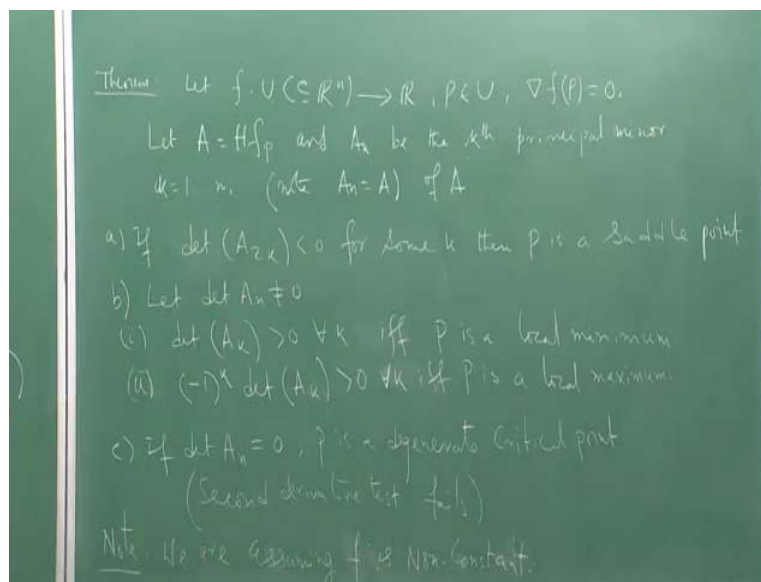 Theorem: Let f: U (⊆ ℝⁿ) → ℝ, P ∈ U, ∇f(P) = 0.
Let A = Hf_P and A_k be the kth principal minor
k = 1 n. (note A_n = A) of A
a) If det (A_{2k}) < 0 for some k then P is a saddle point
b) Let det A_n ≠ 0
(i) det (A_k) > 0 ∀k iff P is a local minimum
(ii) (-1)^k det (A_k) > 0 ∀k iff P is a local maximum.
c) If det A_n = 0, P is a degenerate critical point
(Second derivative test fails)
Note. We are assuming f is Non-Constant.
)